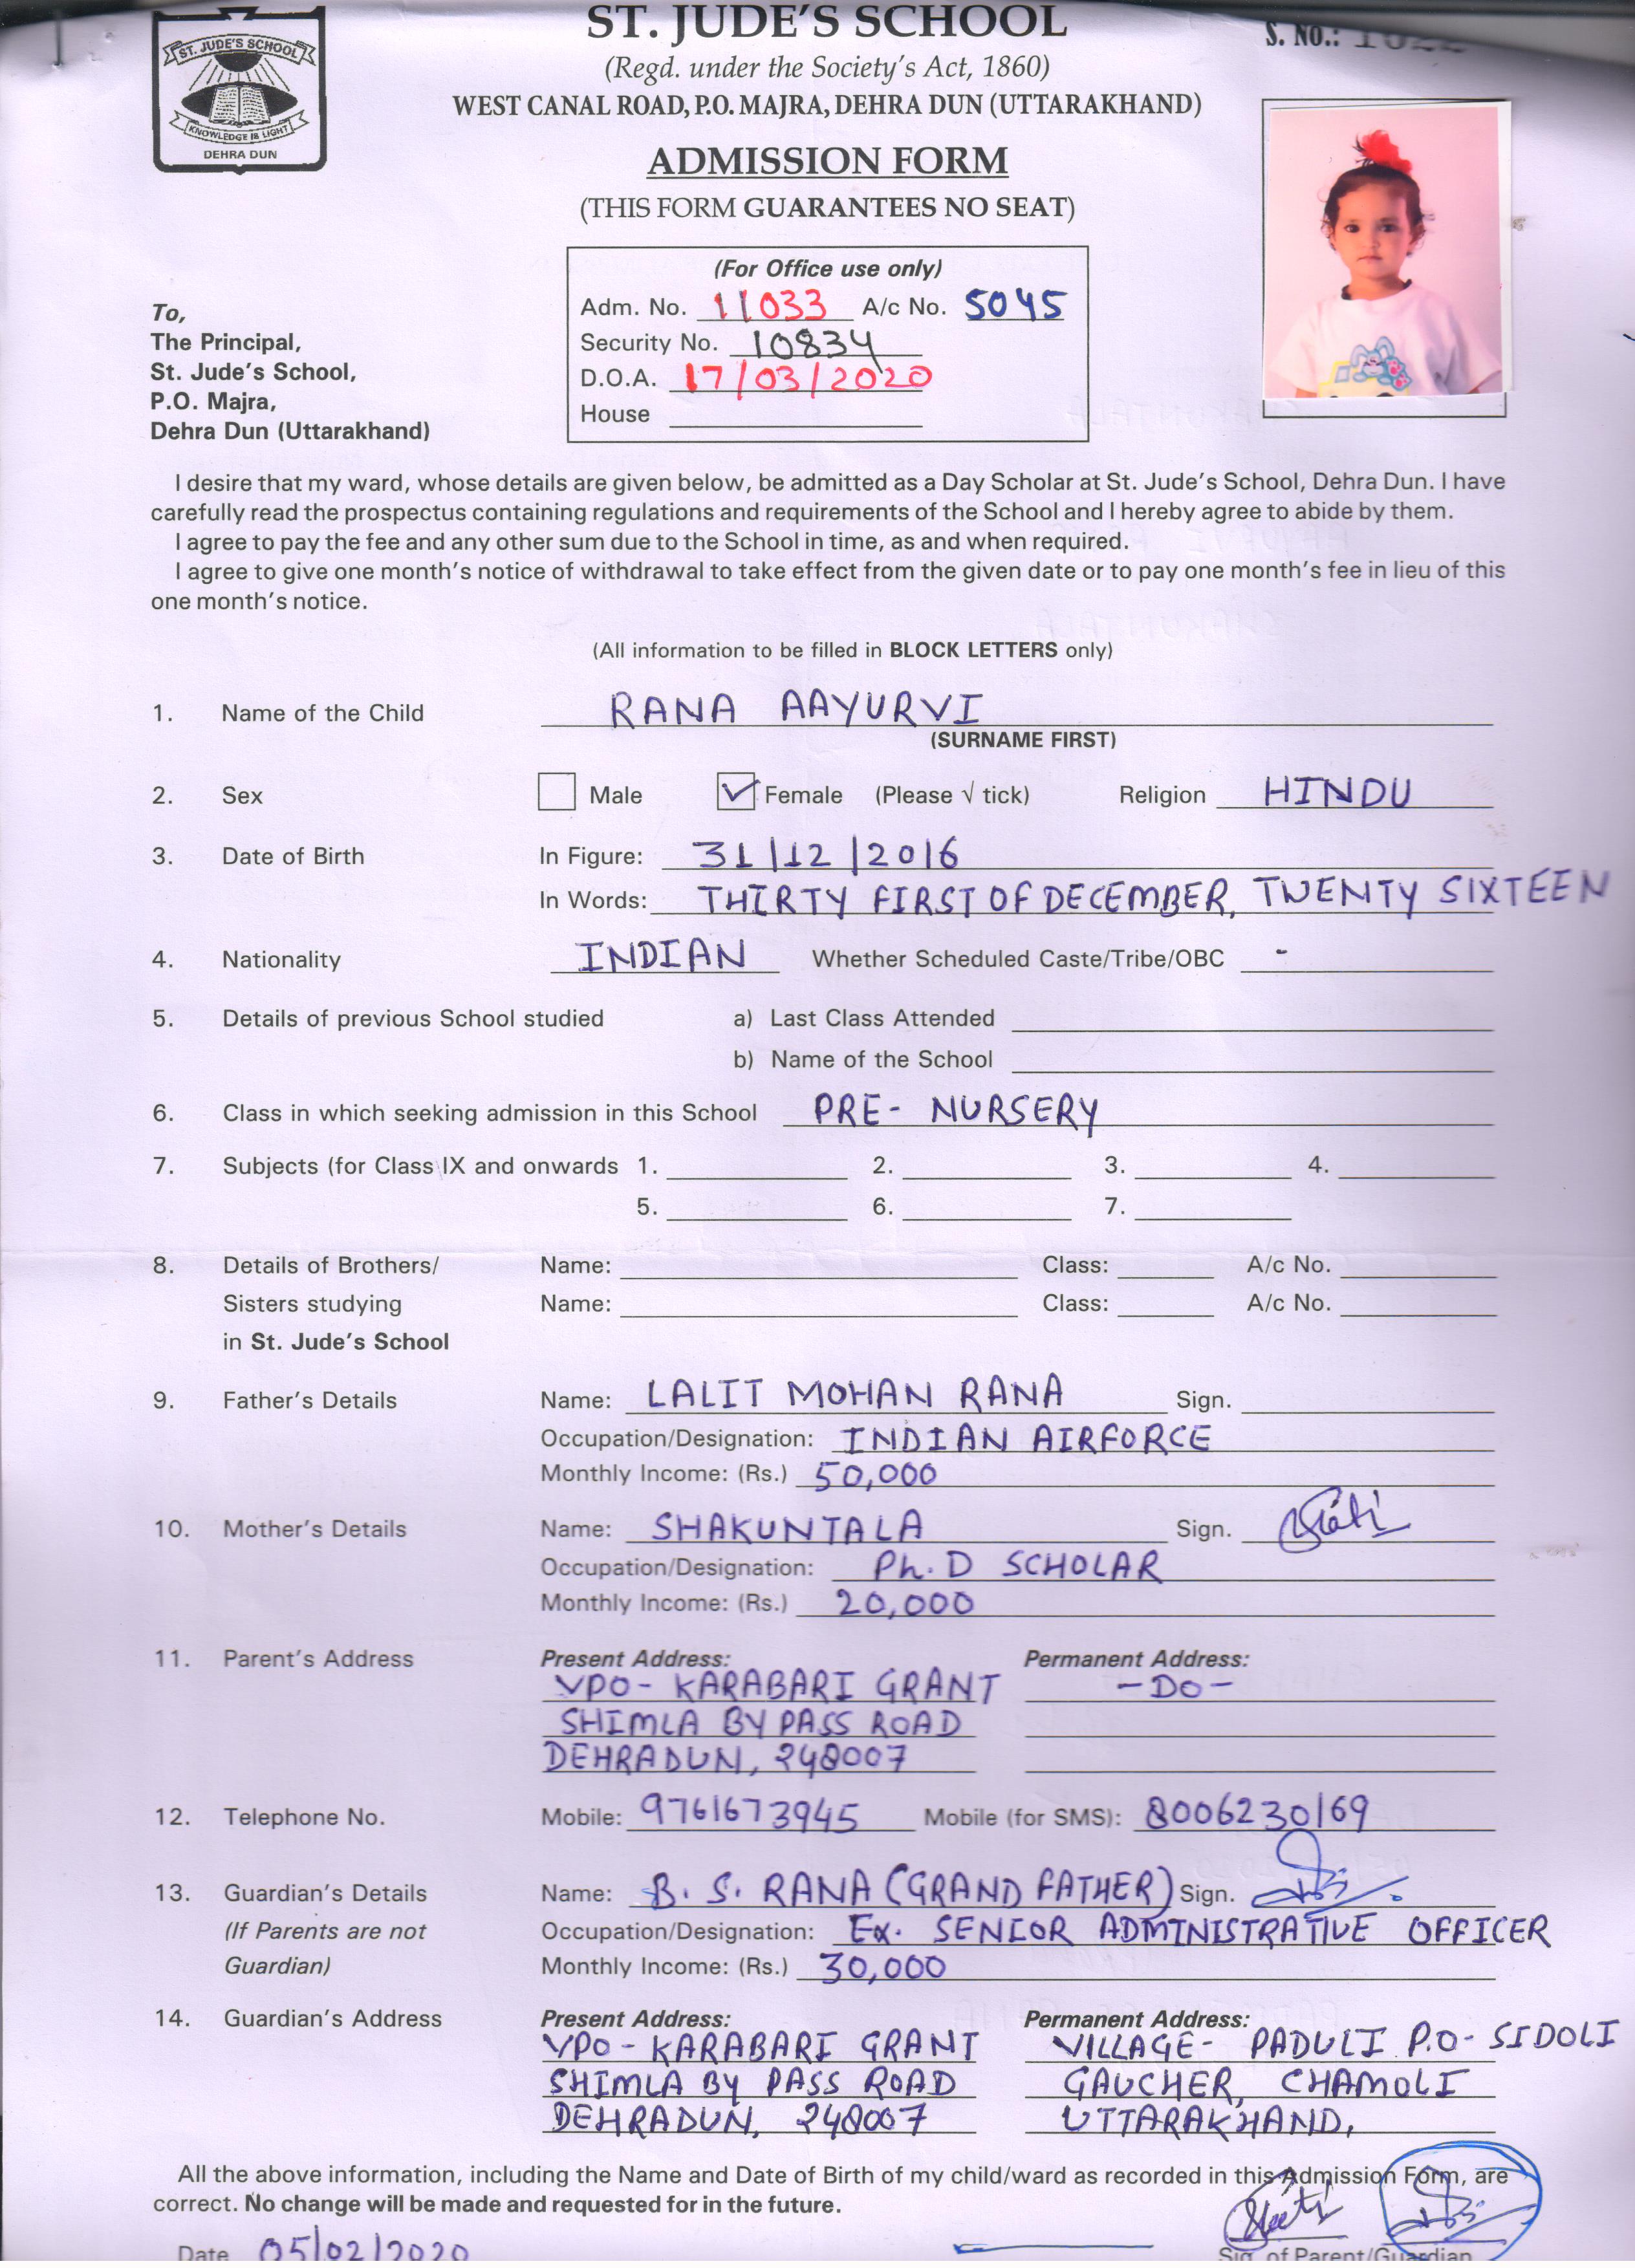 ST. JUDE'S SCHOOL
KNOWLEDGE IS LIGHT
DEHRA DUN
ST. JUDE'S SCHOOL
(Regd. under the Society's Act, 1860)
WEST CANAL ROAD, P.O. MAJRA, DEHRA DUN (UTTARAKHAND)
S. NO.:
ADMISSION FORM
(THIS FORM GUARANTEES NO SEAT)
(For Office use only)
Adm. No. 11033 A/c No. 5045
Security No. 10834
D.O.A. 17/03/2020
House
To,
The Principal,
St. Jude's School,
P.O. Majra,
Dehra Dun (Uttarakhand)
I desire that my ward, whose details are given below, be admitted as a Day Scholar at St. Jude's School, Dehra Dun. I have
carefully read the prospectus containing regulations and requirements of the School and I hereby agree to abide by them.
I agree to pay the fee and any other sum due to the School in time, as and when required.
I agree to give one month's notice of withdrawal to take effect from the given date or to pay one month's fee in lieu of this
one month's notice.
(All information to be filled in BLOCK LETTERS only)
1. Name of the Child RANA AAYURVI
(SURNAME FIRST)
2. Sex Male Female (Please √ tick) Religion HINDU
3. Date of Birth In Figure: 31/12/2016
In Words: THIRTY FIRST OF DECEMBER, TWENTY SIXTEEN
4. Nationality INDIAN Whether Scheduled Caste/Tribe/OBC -
5. Details of previous School studied a) Last Class Attended
b) Name of the School
6. Class in which seeking admission in this School PRE- NURSERY
7. Subjects (for Class IX and onwards 1. 2. 3. 4.
5. 6. 7.
8. Details of Brothers/ Name: Class: A/c No.
Sisters studying Name: Class: A/c No.
in St. Jude's School
9. Father's Details Name: LALIT MOHAN RANA Sign.
Occupation/Designation: INDIAN AIRFORCE
Monthly Income: (Rs.) 50,000
10. Mother's Details Name: SHAKUNTALA Sign.
Occupation/Designation: Ph. D SCHOLAR
Monthly Income: (Rs.) 20,000
11. Parent's Address Present Address: Permanent Address:
VPO- KARABARI GRANT -DO-
SHIMLA BY PASS ROAD
DEHRADUN, 248007
12. Telephone No. Mobile: 9761673945 Mobile (for SMS): 8006230169
13. Guardian's Details Name: B. S. RANA (GRAND FATHER) Sign.
(If Parents are not Occupation/Designation: Ex. SENIOR ADMINISTRATIVE OFFICER
Guardian) Monthly Income: (Rs.) 30,000
14. Guardian's Address Present Address: Permanent Address:
VPO- KARABARI GRANT VILLAGE- PADULI P.O- SIDOLI
SHIMLA BY PASS ROAD GAUCHER, CHAMOLI
DEHRADUN, 248007 UTTARAKHAND,
All the above information, including the Name and Date of Birth of my child/ward as recorded in this Admission Form, are
correct. No change will be made and requested for in the future.
Date 05/02/2020 Sig. of Parent/Guardian